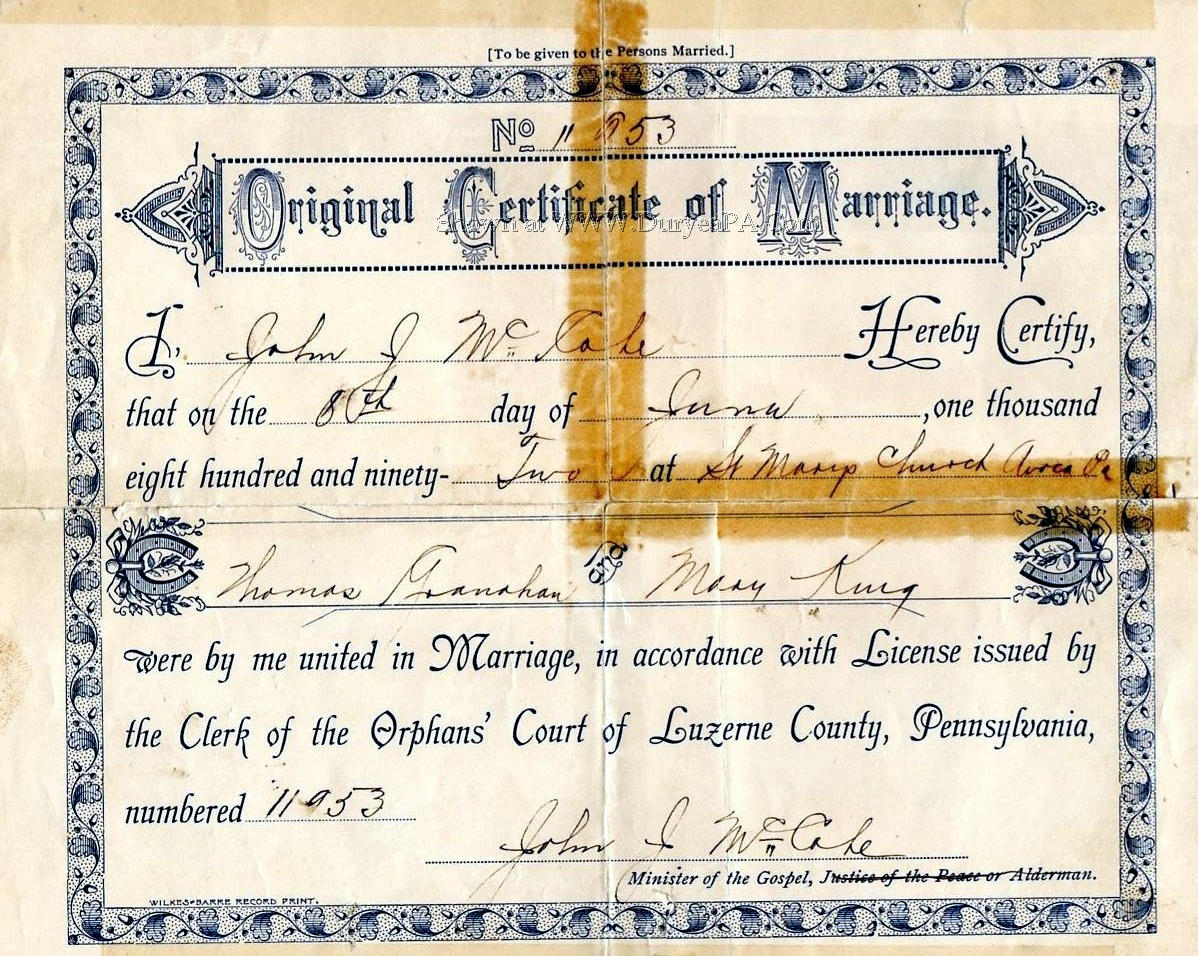 [To be given to the Persons Married.]
No 11953
Original Certificate of Marriage.
Shown at WWW.DuryeaPA.Com
I, John J McCabe Hereby Certify,
that on the 8th day of June, one thousand
eight hundred and ninety- Two at St Marys Church Avoca Pa
Thomas Granahan and Mary King
were by me united in Marriage, in accordance with License issued by
the Clerk of the Orphans' Court of Luzerne County, Pennsylvania,
numbered 11953
John J McCabe
Minister of the Gospel, Justice of the Peace or Alderman.
WILKES-BARRE RECORD PRINT.